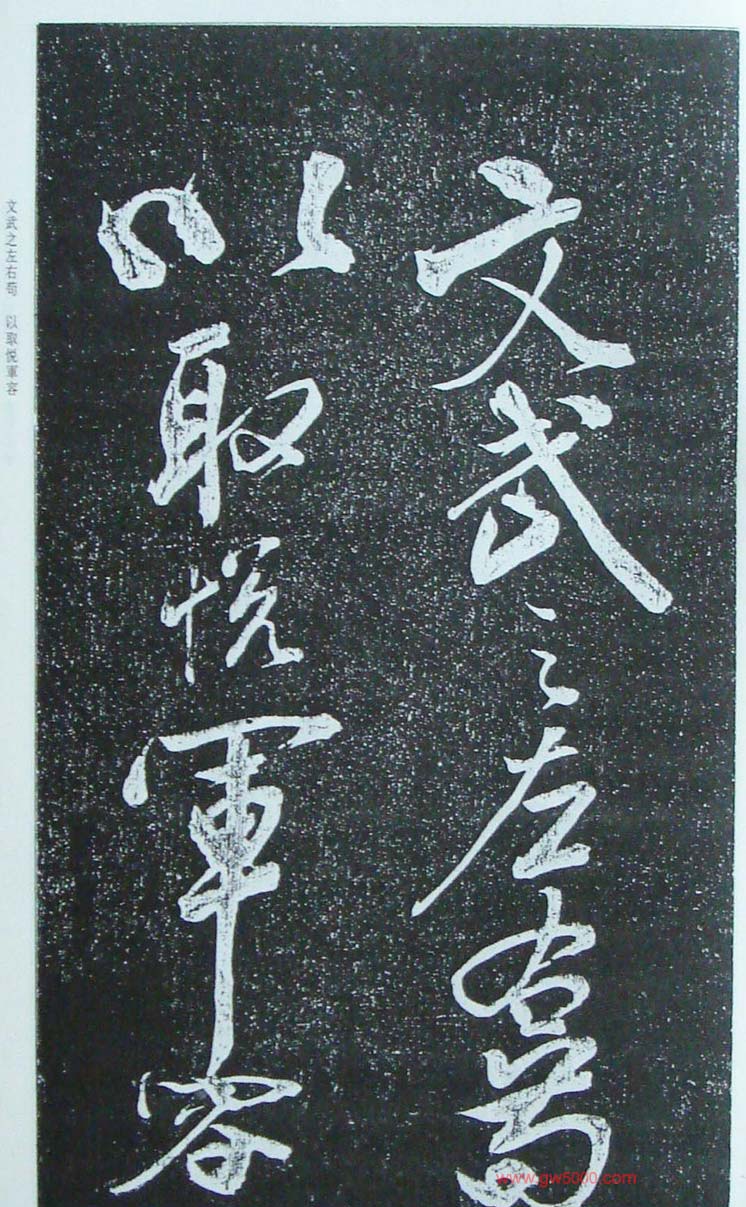 文武之左右苟
以取悦軍容
文武之左右苟　以取悦軍容
www.gw5000.com